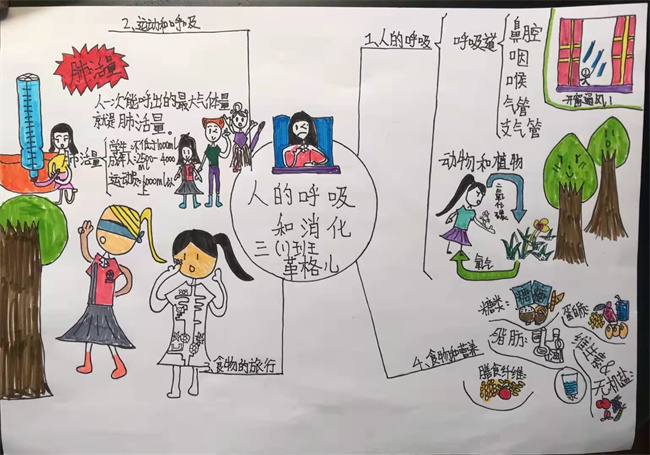 2、运动和呼吸
肺活量
人一次能呼出的最大气体量
就是肺活量。
肺活量
学生：不低于1000ml
成年人：2500-4000
ml
人的呼吸
和消化
三(1)班
1、人的呼吸
呼吸道
鼻腔
咽
喉
气管
支气管
开窗通风！
动物和植物
二氧化碳
氧气
3、食物的旅行
4、食物和营养
糖类：
脂肪：
膳食纤维：
蛋白质：
维生素
无机盐：